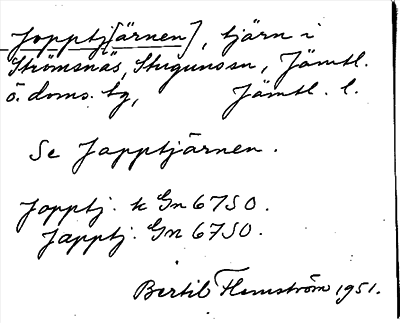 Jopptj[ärnen], tjärn i
Strömsnäs, Stugun sn, Jämtl.
ö. doms. tg, Jämtl. l.
Se Japptjärnen.
Jopptj. k Gn 6750.
Japptj. Gn 6750.
Bertil Flemström 1951.